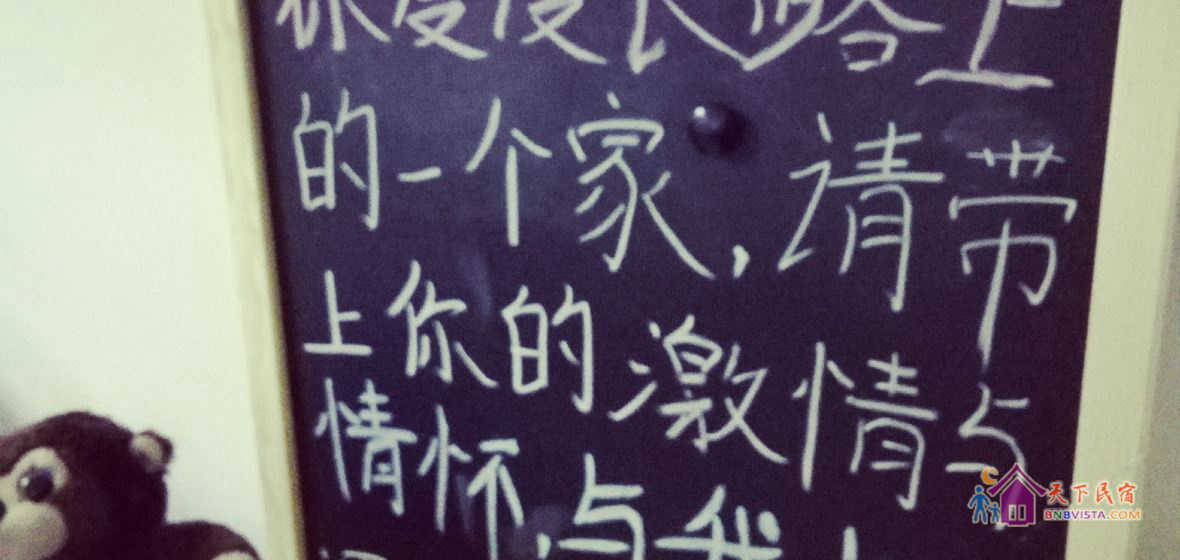 路上
的一个家,请带
上你的激情与
情怀,与我
天下民宿
BNBVISTA.COM